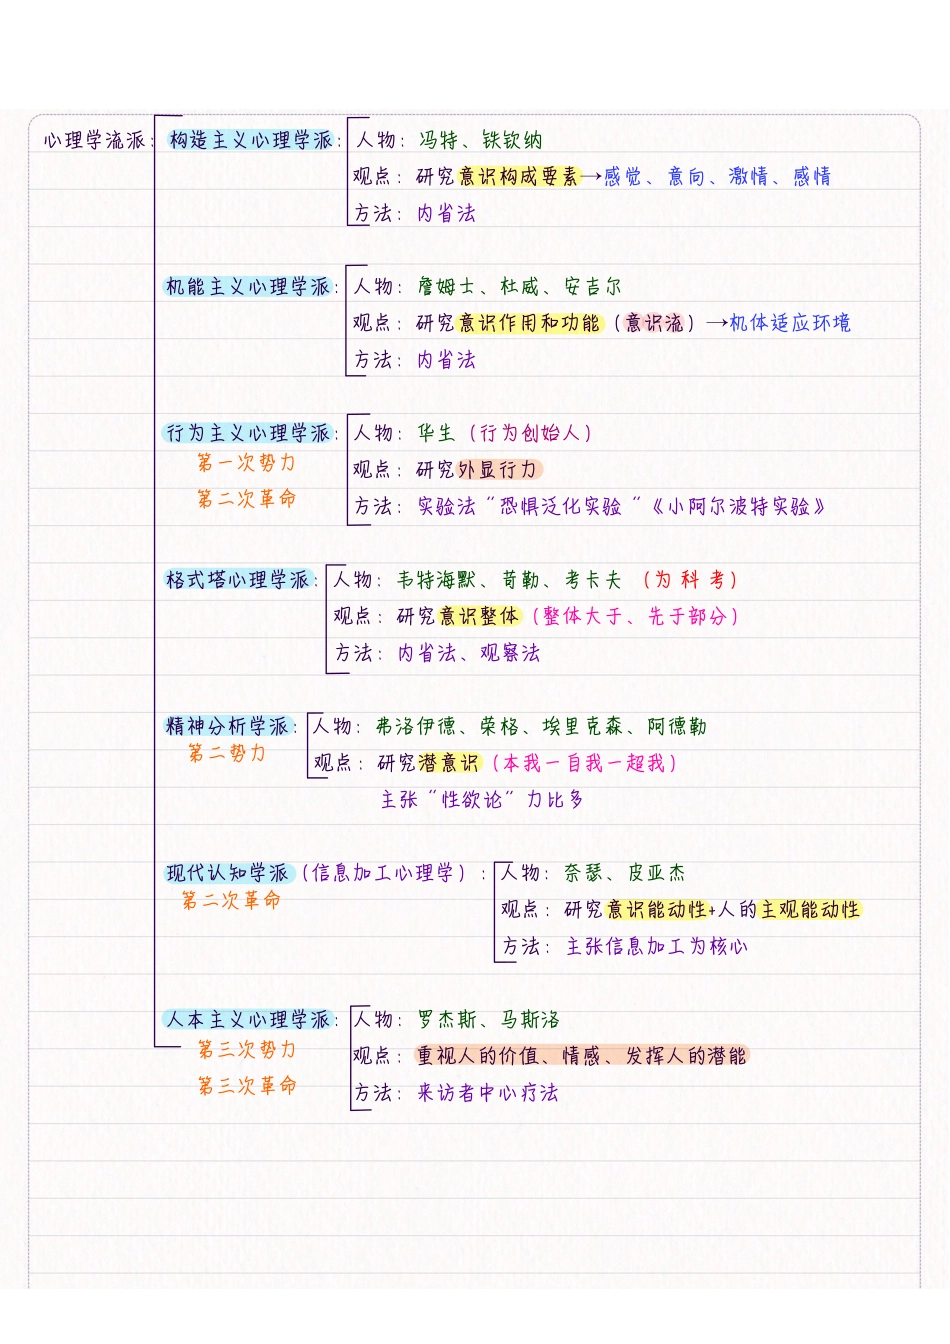 心理学流派：
构造主义心理学派：
人物：冯特、铁钦纳
观点：研究意识构成要素→感觉、意向、激情、感情
方法：内省法
机能主义心理学派：
人物：詹姆士、杜威、安吉尔
观点：研究意识作用和功能（意识流）→机体适应环境
方法：内省法
行为主义心理学派：
第一次势力
第二次革命
人物：华生（行为创始人）
观点：研究外显行力
方法：实验法“恐惧泛化实验“《小阿尔波特实验》
格式塔心理学派：
人物：韦特海默、苛勒、考卡夫（为 科 考）
观点：研究意识整体（整体大于、先于部分）
方法：内省法、观察法
精神分析学派：
第二势力
人物：弗洛伊德、荣格、埃里克森、阿德勒
观点：研究潜意识（本我一自我一超我）
主张“性欲论”力比多
现代认知学派（信息加工心理学）：
第二次革命
人物：奈瑟、皮亚杰
观点：研究意识能动性+人的主观能动性
方法：主张信息加工为核心
人本主义心理学派：
第三次势力
第三次革命
人物：罗杰斯、马斯洛
观点：重视人的价值、情感、发挥人的潜能
方法：来访者中心疗法